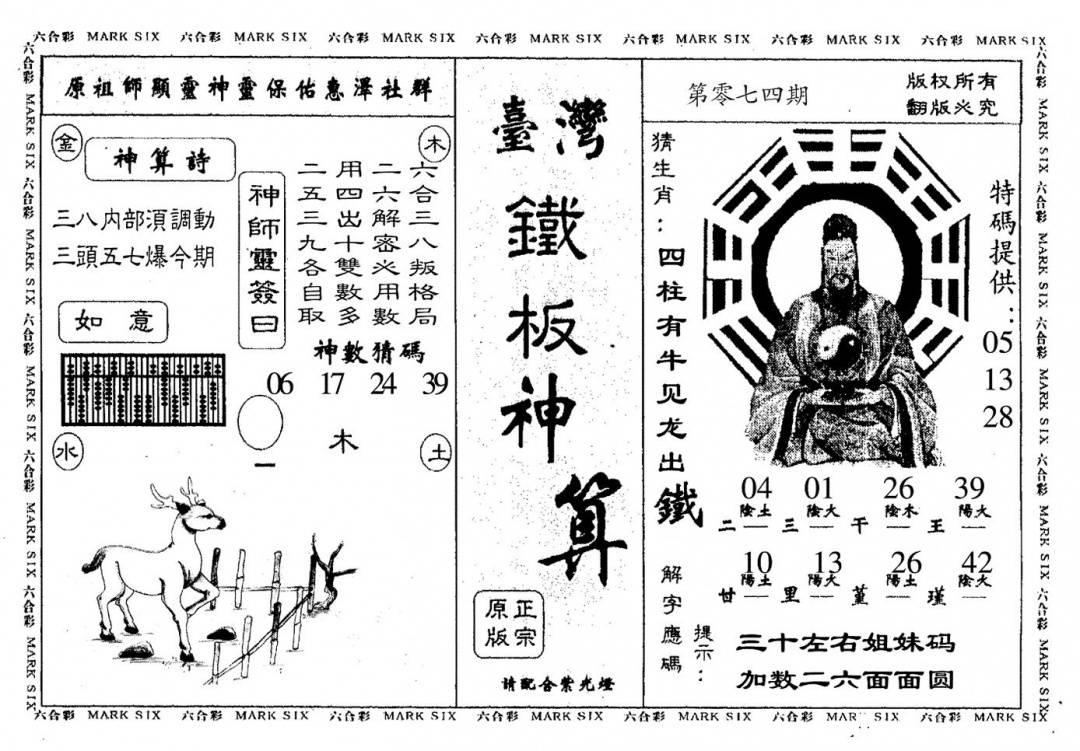 六合彩 MARK SIX 六合彩 MARK SIX 六合彩 MARK SIX 六合彩 MARK SIX 六合彩 MARK SIX 六合彩 MARK SIX 六合彩 MARK SIX
六合彩 MARK SIX 六合彩 MARK SIX 六合彩 MARK SIX 六合彩 MARK SIX 六合彩 MARK SIX
原祖師顯靈神靈保佑惠澤社群
金
木
神算詩
三八内部須調動
三頭五七爆今期
如意
神師靈簽曰
六合三八叛格局
二六解密必用數
用四出十雙數多
二五三九各自取
神數猜碼
06 17 24 39
一
木
水
土
臺灣
鐵板神算
正宗
原版
請配合紫光燈
第零七四期
版权所有
翻版必究
猜生肖：四柱有牛见龙出鐵
特碼提供：
05
13
28
04 01 26 39
陰土 陰火 陰木 陽火
二 三 干 王
10 13 26 42
陽土 陽火 陽土 陰火
廿 里 堇 瑾
解字應碼
提示：
三十左右姐妹码
加数二六面面圆
六合彩 MARK SIX 六合彩 MARK SIX 六合彩 MARK SIX 六合彩 MARK SIX 六合彩 MARK SIX
六合彩 MARK SIX 六合彩 MARK SIX 六合彩 MARK SIX 六合彩 MARK SIX 六合彩 MARK SIX 六合彩 MARK SIX 六合彩 MARK SIX